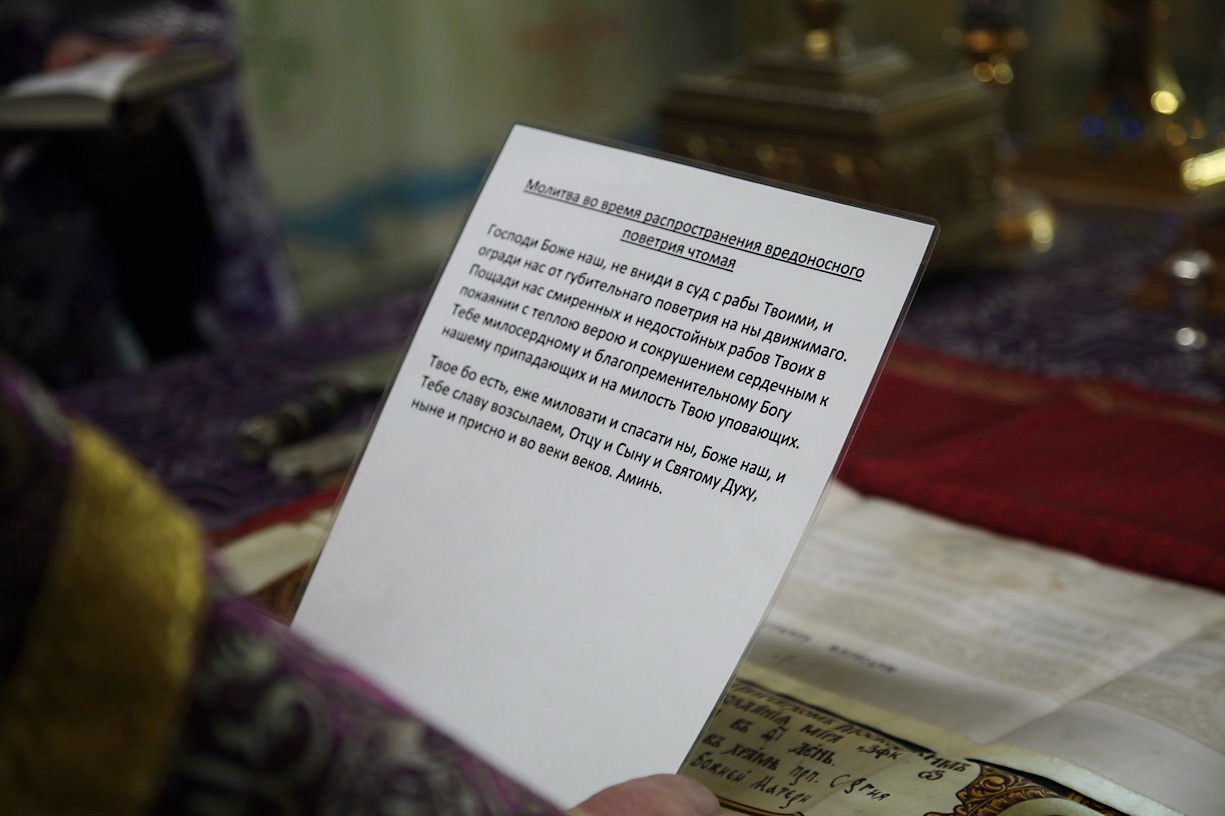 Молитва во время распространения вредоносного
поветрия чтомая
Господи Боже наш, не вниди в суд с рабы Твоими, и
огради нас от губительнаго поветрия на ны движимаго.
Пощади нас смиренных и недостойных рабов Твоих в
покаянии с теплою верою и сокрушением сердечным к
Тебе милосердному и благопременительному Богу
нашему припадающих и на милость Твою уповающих.
Твое бо есть, еже миловати и спасати ны, Боже наш, и
Тебе славу возсылаем, Отцу и Сыну и Святому Духу,
ныне и присно и во веки веков. Аминь.
въ день.
въ храмѣ прп. Сергия
Божией Матери